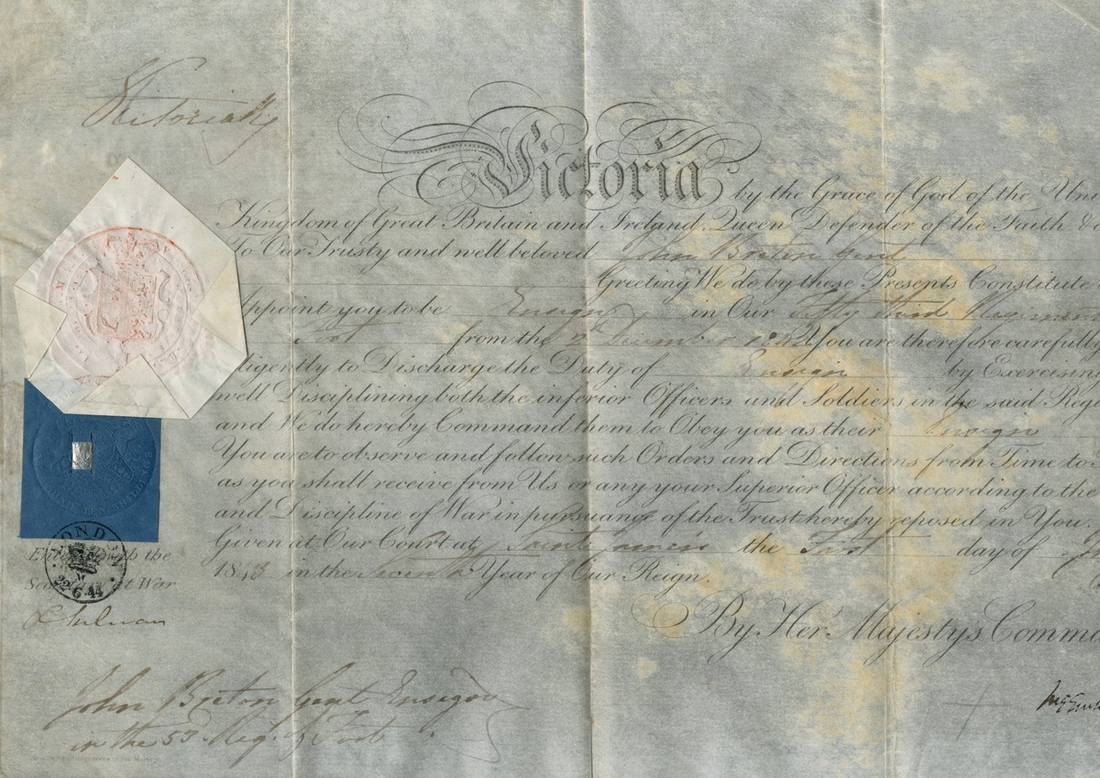 Victoria R
Victoria by the Grace of God of the Uni
Kingdom of Great Britain and Ireland, Queen, Defender of the Faith &
To Our Trusty and well beloved John Breton Gent
Greeting We do by these Presents Constitute
Appoint you to be Ensign in Our Fifty third Regiment
Foot from the 2 December 1842 You are therefore carefully
ligently to Discharge the Duty of Ensign by Exercising
well Disciplining both the inferior Officers and Soldiers in the said Regi
and We do hereby Command them to Obey you as their Ensign
You are to observe and follow such Orders and Directions from Time to
as you shall receive from Us or any your Superior Officer according to the
and Discipline of War in pursuance of the Trust hereby reposed in You.
Given at Our Court at Saint James's the First day of
1843 in the Seventh Year of Our Reign.
By Her Majesty's Comma
LONDON
22·6·44
the
at War
John Breton Gent Ensign
in the 53 Reg. Foot